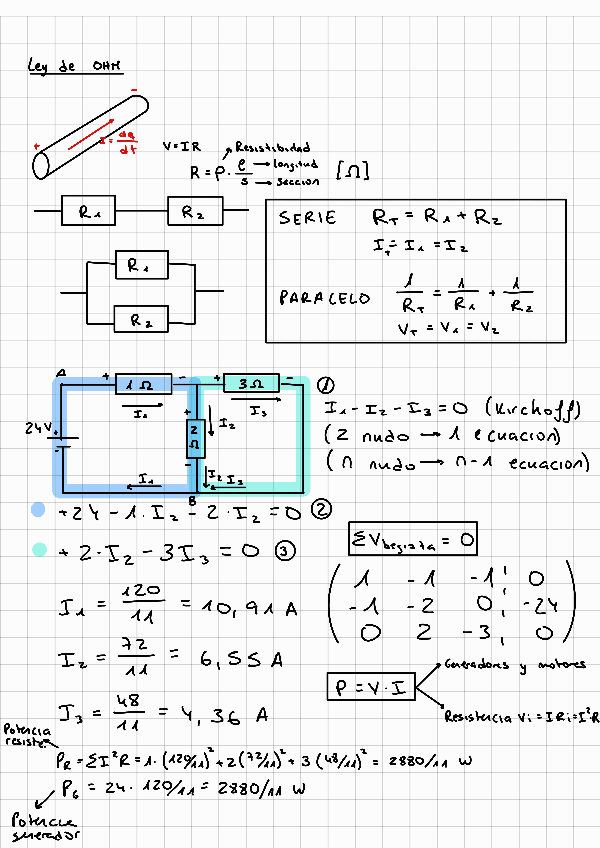 Ley de OHM
+ -
I = dq/dt
V=IR
Resistibidad
R = ρ · e/s [Ω]
longitud
sección
R1 R2
R1
R2
SERIE RT = R1 + R2
IT = I1 = I2
PARALELO 1/RT = 1/R1 + 1/R2
VT = V1 = V2
A + 1Ω - + 3Ω -
I1 I3
24V + -
+ 2Ω - I2
I1 I2 I3
B
①
I1 - I2 - I3 = 0 (Kirchoff)
(2 nudo → 1 ecuacion)
(n nudo → n-1 ecuacion)
+24 - 1·I2 - 2·I2 = 0 ②
+ 2·I2 - 3I3 = 0 ③
ΣVbegista = 0
1 -1 -1 0
-1 -2 0 -24
0 2 -3 0
I1 = 120/11 = 10,91 A
I2 = 72/11 = 6,55 A
I3 = 48/11 = 4,36 A
P = V·I
Generadores y motores
Resistencia Vi = IRi = I²R
Potencia
resiste.
PR = ΣI²R = 1·(120/11)² + 2(72/11)² + 3(48/11)² = 2880/11 W
PG = 24 · 120/11 = 2880/11 W
Potencia
generador